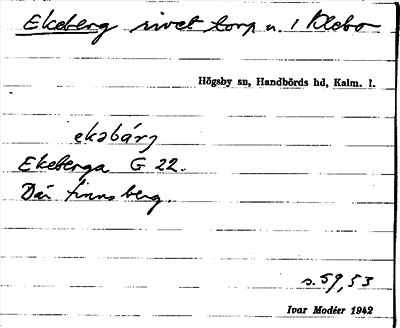 Ekeberg rivet torp u. 1 Klebo
Högsby sn, Handbörds hd, Kalm. l.
ekəbärj
Ekeberga G 22.
Där finns berg.
s. 59, 53
Ivar Modéer 1942